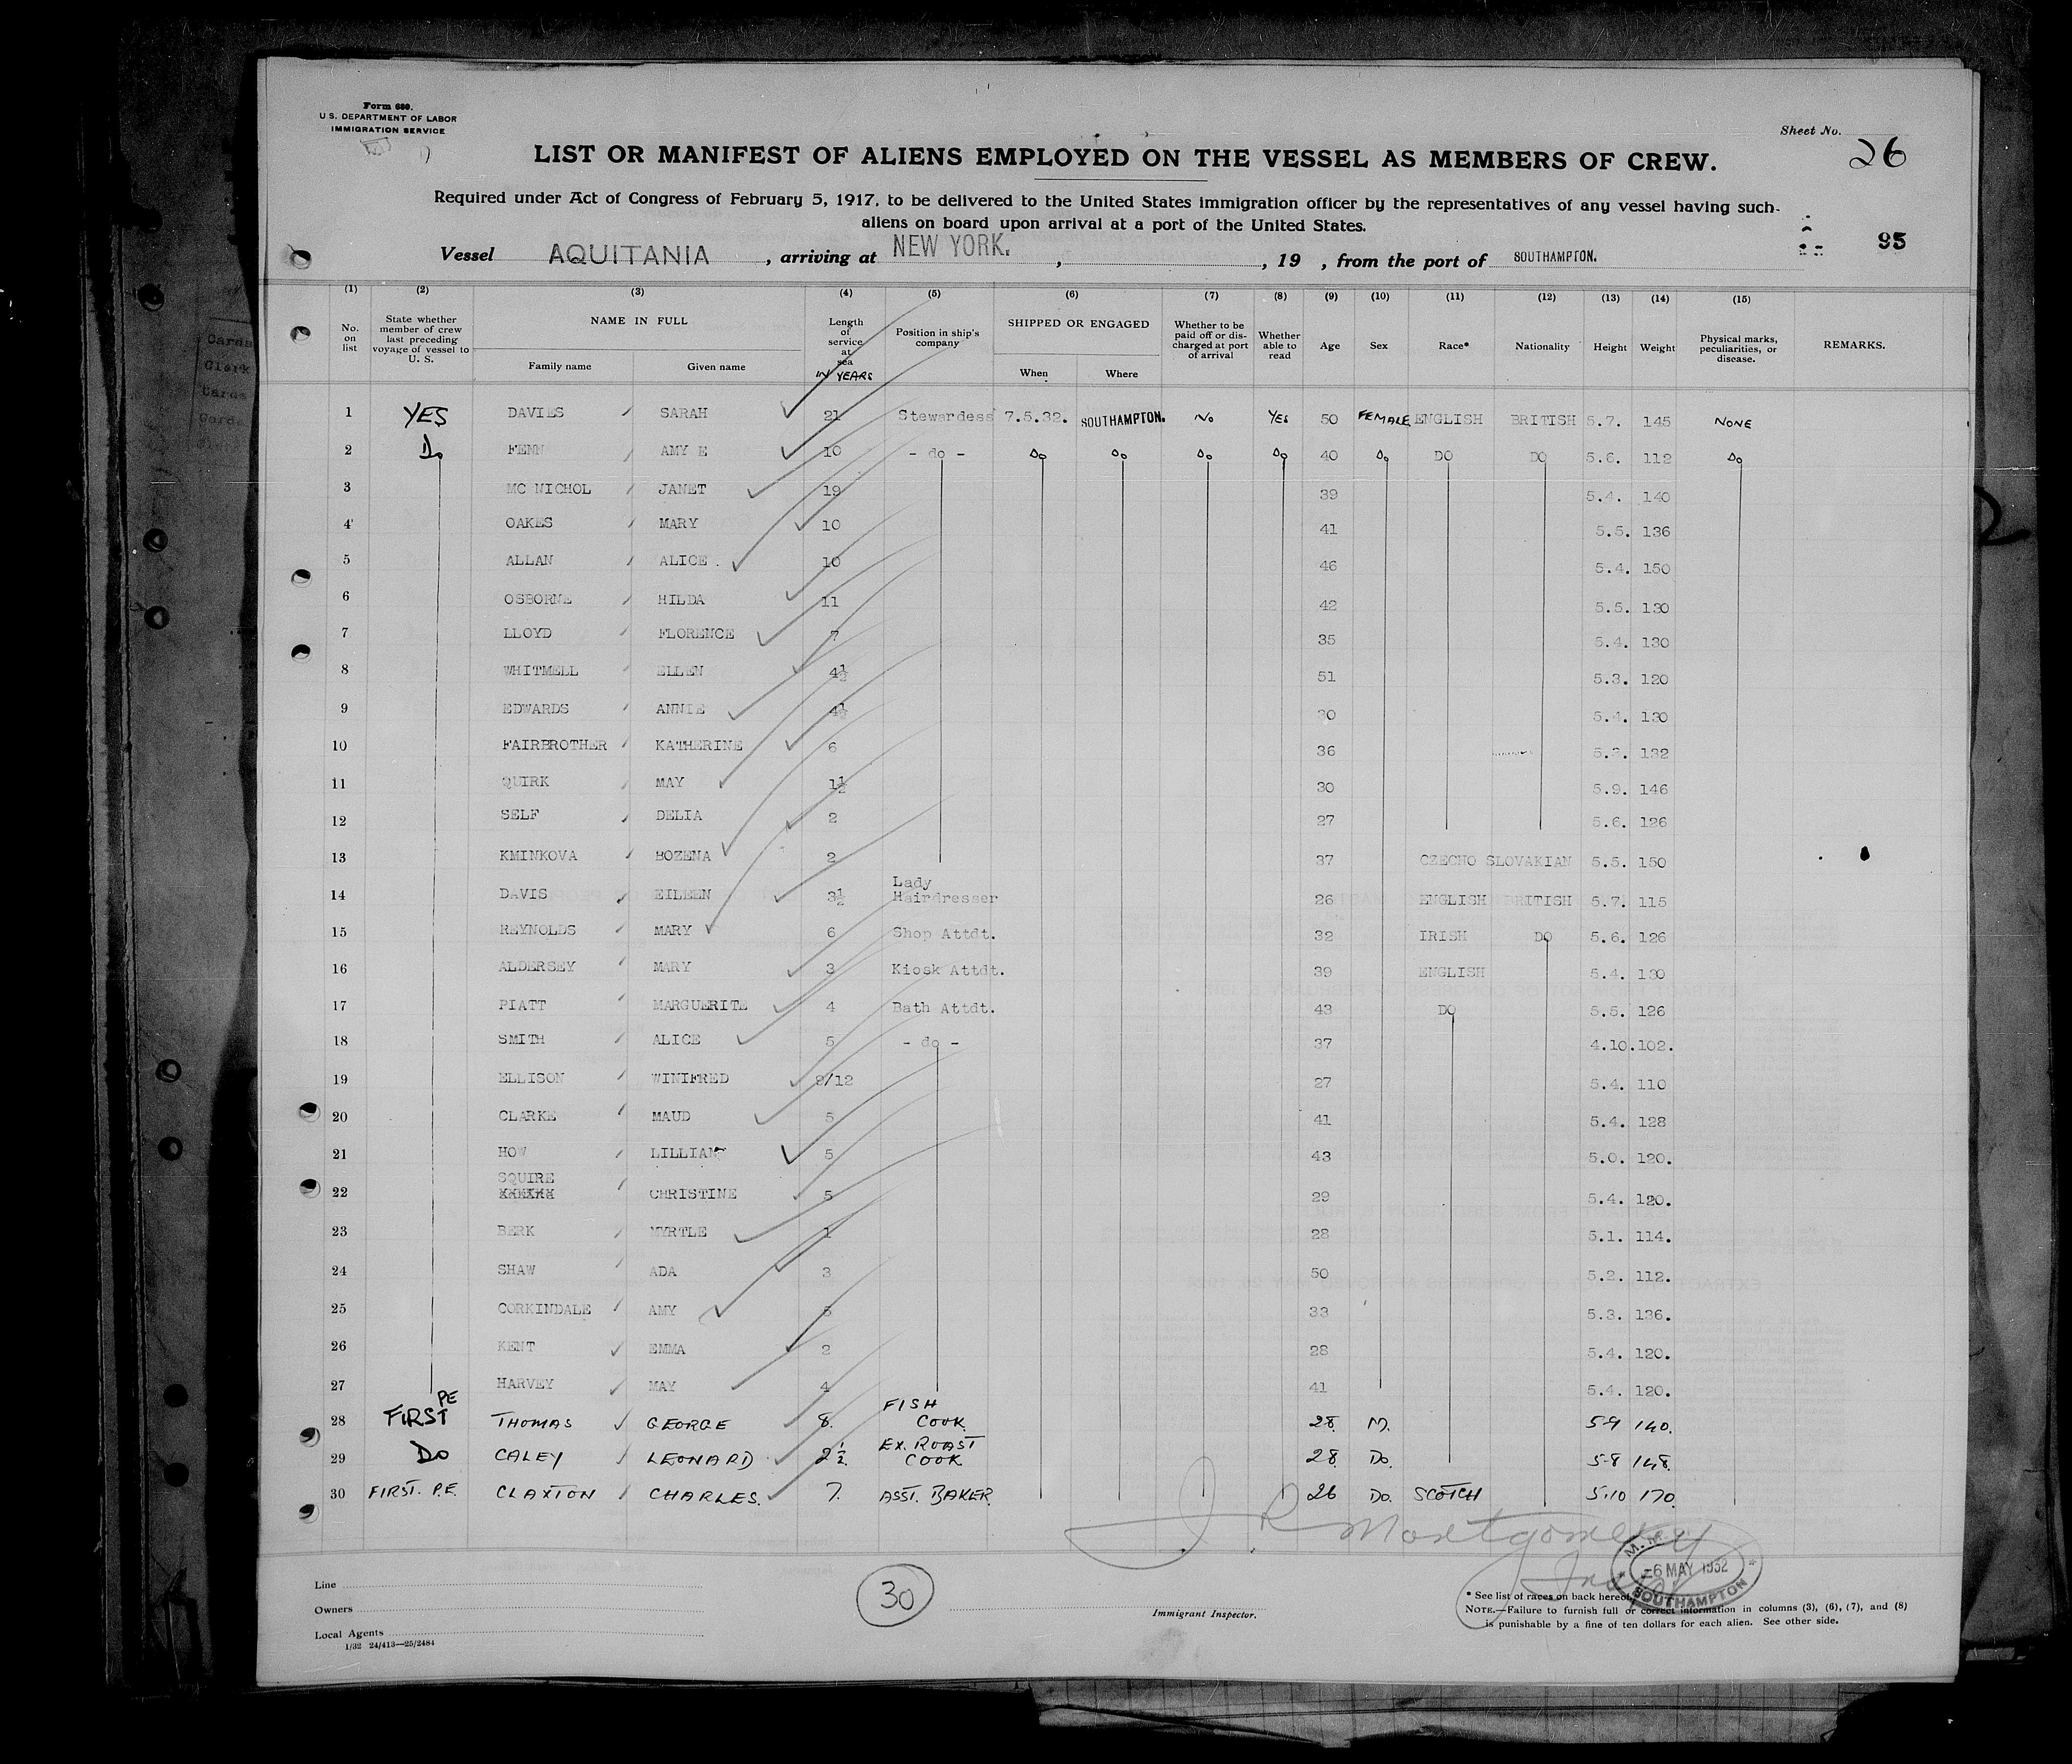 Form 680.
U. S. DEPARTMENT OF LABOR
IMMIGRATION SERVICE
Sheet No. 26
LIST OR MANIFEST OF ALIENS EMPLOYED ON THE VESSEL AS MEMBERS OF CREW.
Required under Act of Congress of February 5, 1917, to be delivered to the United States immigration officer by the representatives of any vessel having such
aliens on board upon arrival at a port of the United States.
95
Vessel AQUITANIA, arriving at NEW YORK. , , 19 , from the port of SOUTHAMPTON.
(1) (2) (3) (4) (5) (6) (7) (8) (9) (10) (11) (12) (13) (14) (15)
No. on list State whether member of crew last preceding voyage of vessel to U. S. NAME IN FULL Family name Given name Length of service at sea IN YEARS Position in ship's company SHIPPED OR ENGAGED When Where Whether to be paid off or discharged at port of arrival Whether able to read Age Sex Race* Nationality Height Weight Physical marks, peculiarities, or disease. REMARKS.
1 YES DAVIES SARAH 21 Stewardess 7.5.32. SOUTHAMPTON. No YES 50 FEMALE ENGLISH BRITISH 5.7. 145 NONE
2 Do FENN AMY E 10 - do - Do Do Do Do 40 Do DO DO 5.6. 112 Do
3 MC NICHOL JANET 19 39 5.4. 140
4 OAKES MARY 10 41 5.5. 136
5 ALLAN ALICE . 10 46 5.4. 150
6 OSBORNE HILDA 11 42 5.5. 130
7 LLOYD FLORENCE 7 35 5.4. 130
8 WHITMELL ELLEN 4½ 51 5.3. 120
9 EDWARDS ANNIE 4½ 30 5.4. 130
10 FAIRBROTHER KATHERINE 6 36 132
11 QUIRK MAY 1½ 30 5.9. 146
12 SELF DELIA 2 27 5.6. 126
13 KMINKOVA BOZENA 2 37 CZECHO SLOVAKIAN 5.5. 150
14 DAVIS EILEEN 3½ Lady Hairdresser 26 ENGLISH BRITISH 5.7. 115
15 REYNOLDS MARY 6 Shop Attdt. 32 IRISH DO 5.6. 126
16 ALDERSEY MARY 3 Kiosk Attdt. 39 ENGLISH 5.4. 130
17 PIATT MARGUERITE 4 Bath Attdt. 43 DO 5.5. 126
18 SMITH ALICE 5 - do - 37 4.10. 102.
19 ELLISON WINIFRED 9/12 27 5.4. 110
20 CLARKE MAUD 5 41 5.4. 128
21 HOW LILLIAN 5 43 5.0. 120.
22 SQUIRE CHRISTINE 5 29 5.4. 120.
23 BERK MYRTLE 1 28 5.1. 114.
24 SHAW ADA 3 50 5.2. 112.
25 CORKINDALE AMY 5 33 5.3. 136.
26 KENT EMMA 2 28 5.4. 120.
27 HARVEY MAY 4 41 5.4. 120.
28 FIRST PE THOMAS GEORGE 8. FISH COOK 28 M. 5-9 140.
29 DO CALEY LEONARD 2½ EX. ROAST COOK 28 Do. 5-8 148.
30 FIRST. P.E. CLAXTON CHARLES. 7. ASST. BAKER. 26 Do. SCOTCH 5.10 170
J R Montgomery
Line
Owners
Local Agents
1/32 24/413—25/2484
30
Immigrant Inspector.
-6 MAY 1932
SOUTHAMPTON
* See list of races on back hereof.
NOTE.—Failure to furnish full or correct information in columns (3), (6), (7), and (8)
is punishable by a fine of ten dollars for each alien. See other side.